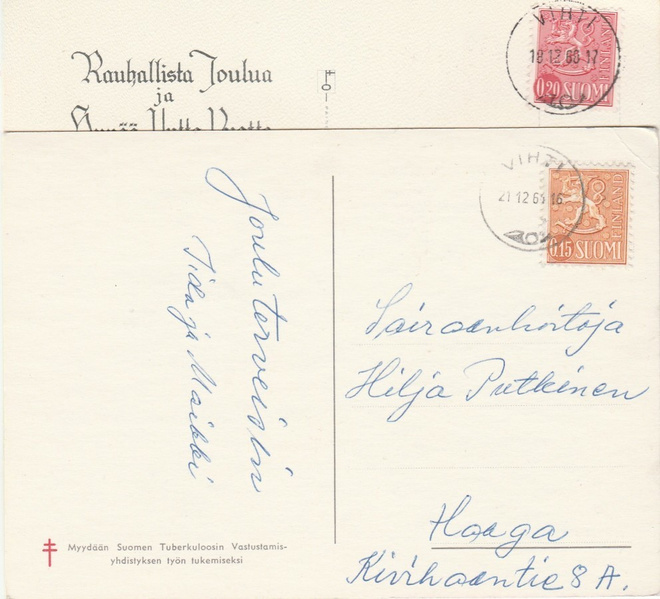 Rauhallista Joulua
ja
VIHTI
18 12 68-17
0,20 SUOMI
FINLAND
VIHTI
21.12 61 16
0,15 SUOMI
FINLAND
Jouluterveisin
Tida ja Maikki
Sairaanhoitaja
Hilja Putkinen
Haaga
Kivihaantie 8 A.
Myydään Suomen Tuberkuloosin Vastustamis-
yhdistyksen työn tukemiseksi